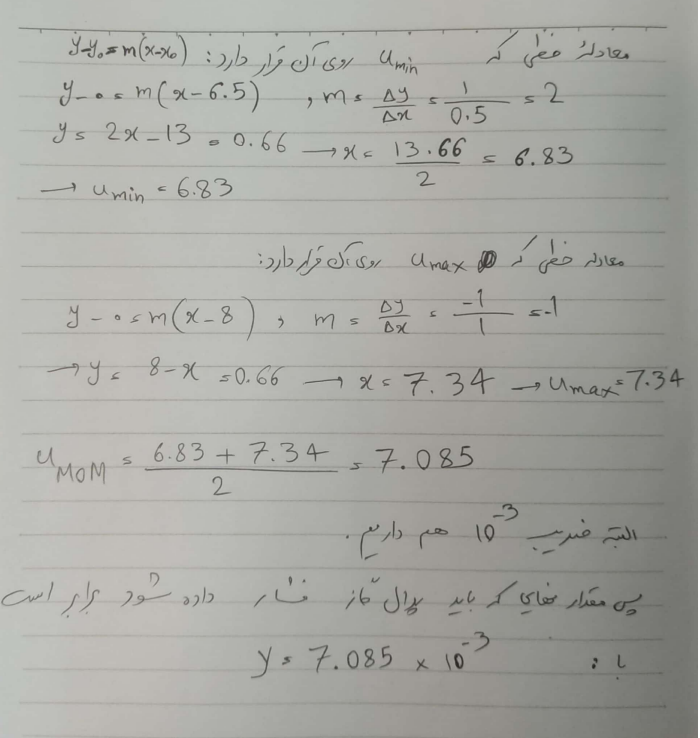 معادلهٔ خطی که u_min روی آن قرار دارد: y-y₀=m(x-x₀)
y-0=m(x-6.5) , m = Δy/Δx = 1/0.5 = 2
y = 2x-13 = 0.66 → x = 13.66/2 = 6.83
→ u_min = 6.83
معادله خطی که u_max روی آن قرار دارد:
y-0=m(x-8) , m = Δy/Δx = -1/1 = -1
→ y = 8-x = 0.66 → x = 7.34 → u_max = 7.34
u_MOM = (6.83 + 7.34)/2 = 7.085
البته ضریب 10⁻³ هم داریم.
پس مقدار نهایی که باید پدال گاز فشار داده شود برابر است
با: y = 7.085 × 10⁻³